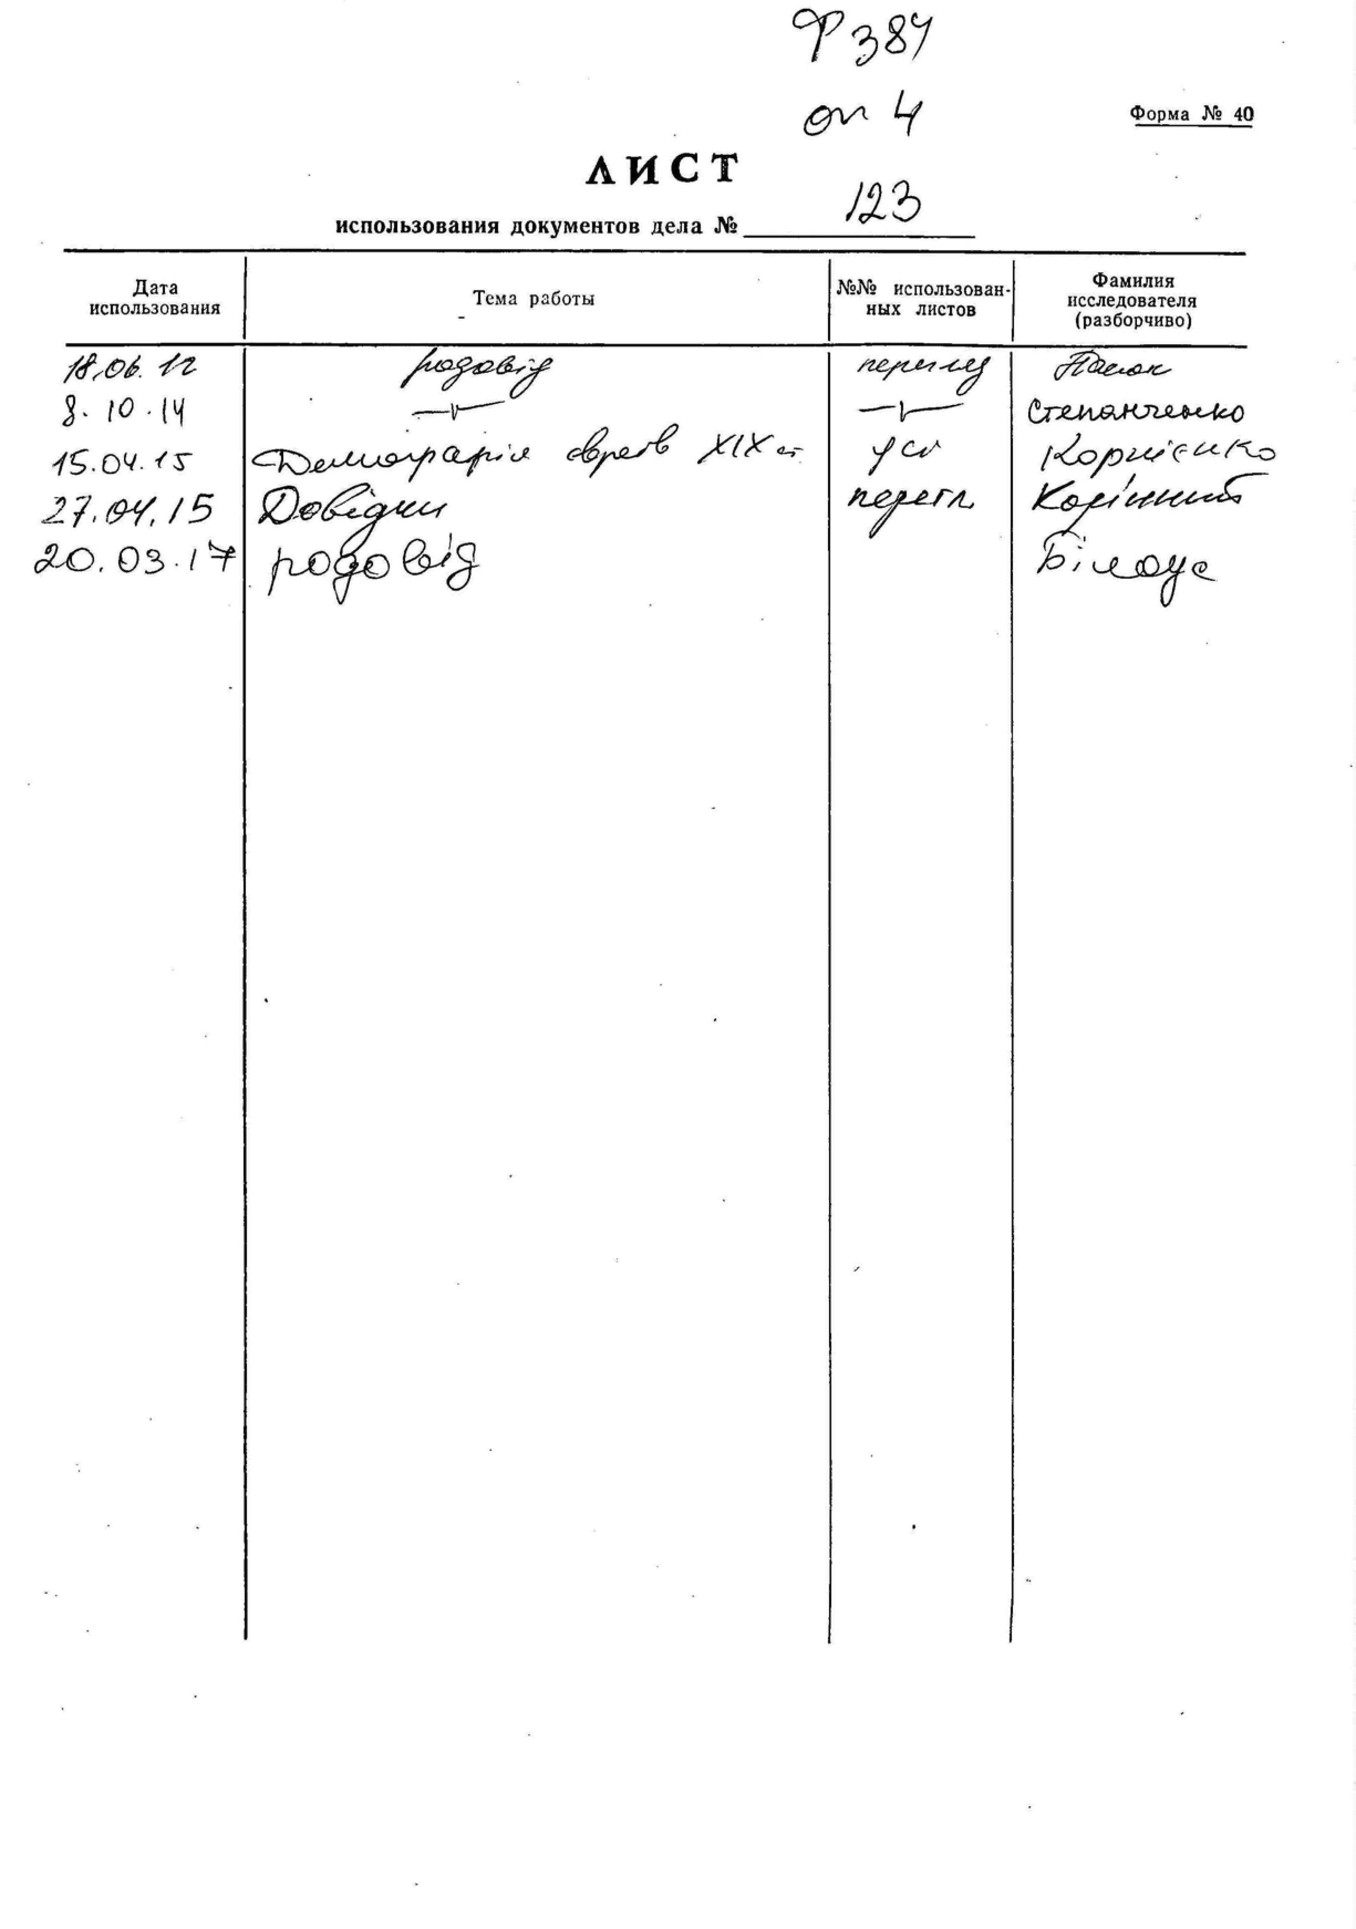 Ф 384
оп 4
Форма № 40
ЛИСТ
использования документов дела № 123
Дата использования
Тема работы
№№ использован-
ных листов
Фамилия
исследователя
(разборчиво)
18.06.12 родовід перегляд
8.10.14 —"— —"— Степанченко
15.04.15 Демографія євреїв XIX ст. усі Корнієнко
27.04.15 Довідки перегл. Корінний
20.03.17 родовід Білоус